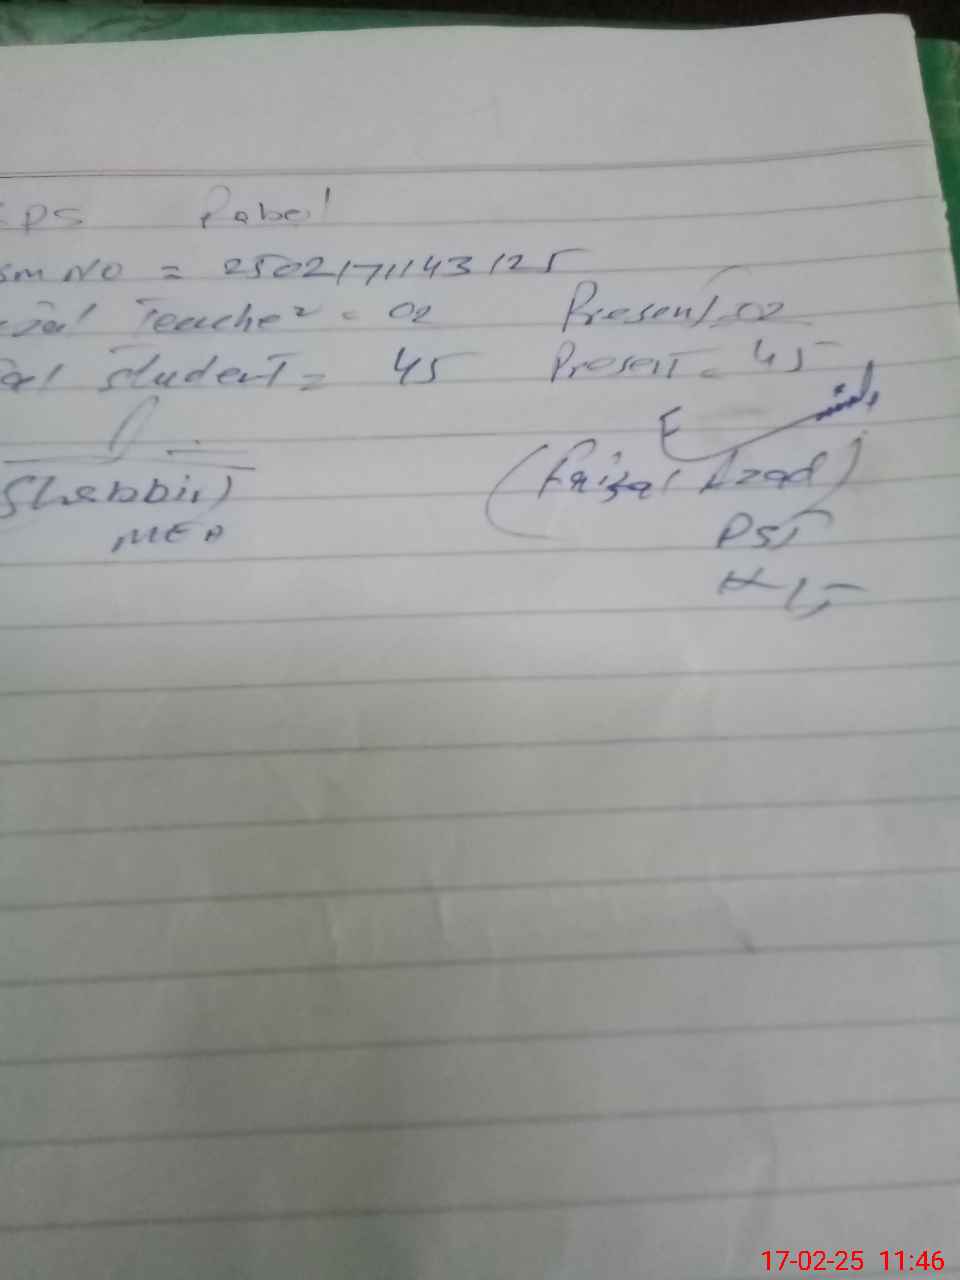 GPS Pabe
SM NO = 2502171143125
Total Teacher = 02 Present = 02
Total Student = 45 Present = 45
(Shabbir) (Faizal Azad)
MEA PST
17-02-25 11:46